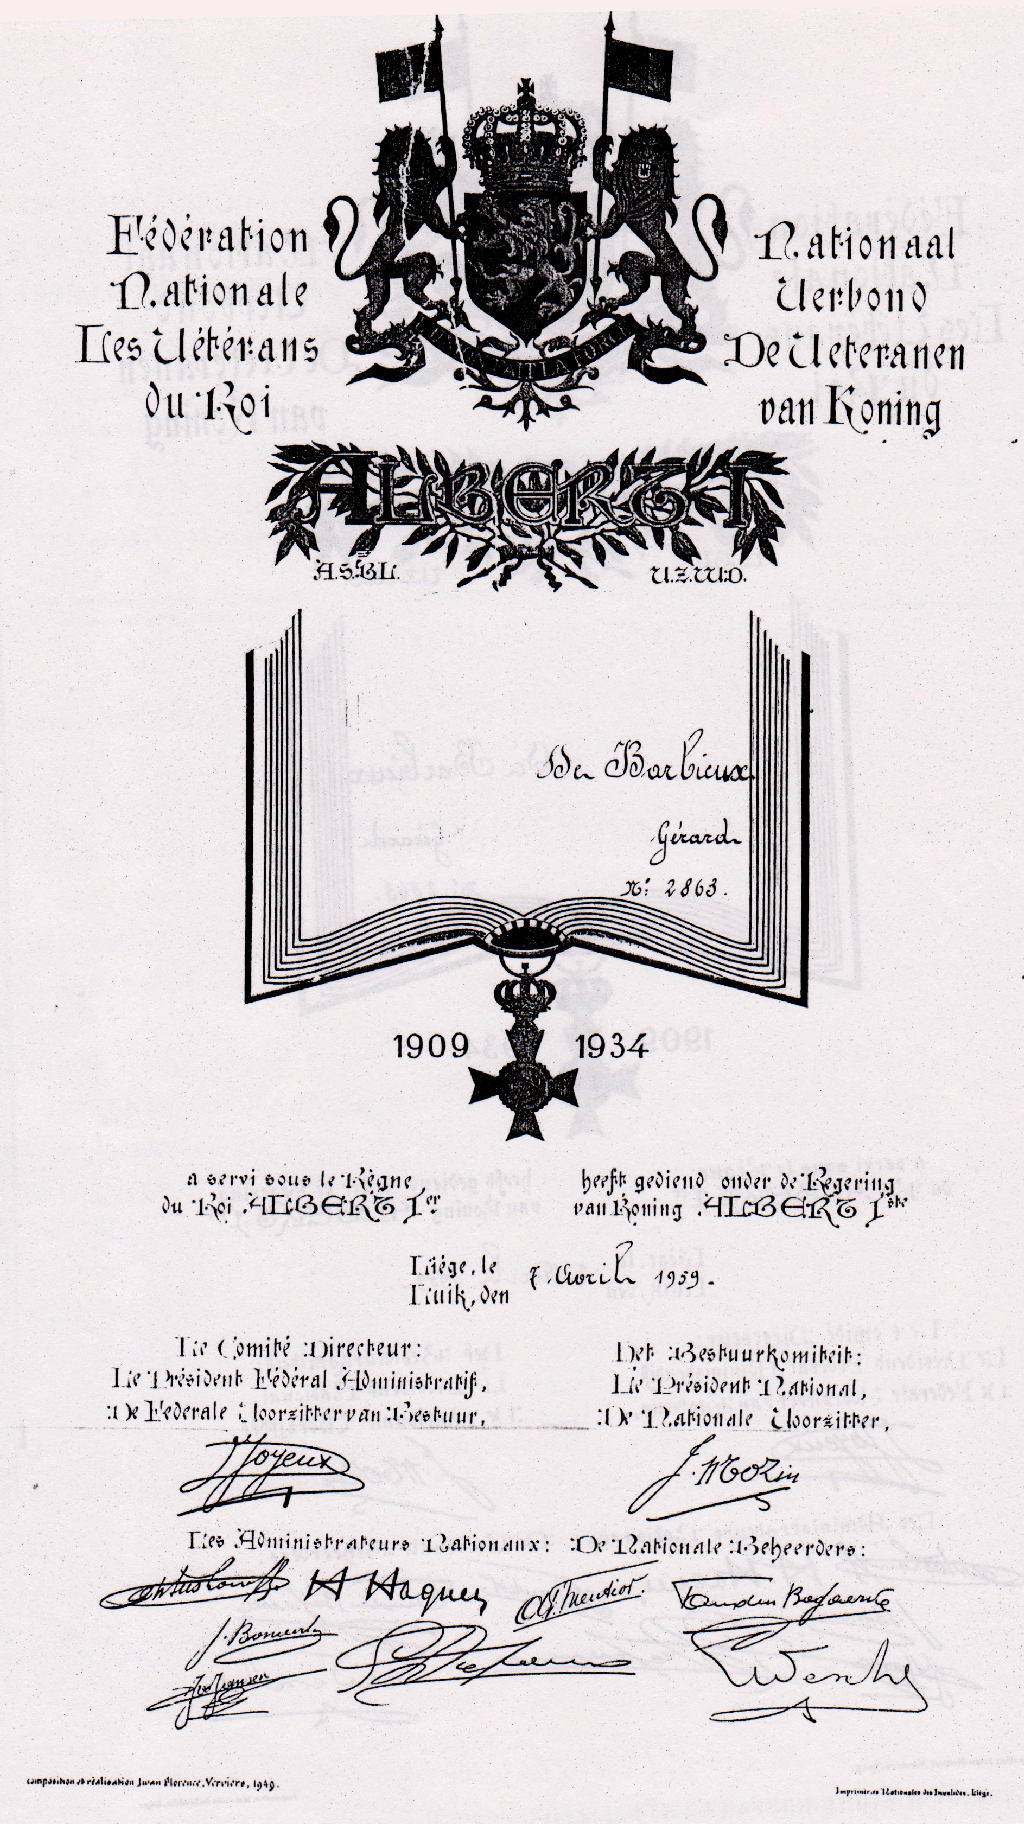 Fédération
Nationale
Les Vétérans
du Roi
Nationaal
Verbond
De Veteranen
van Koning
FAIT LA FORCE
ALBERT I
A.S.B.L.
V.Z.W.D.
De Barbieux
Gérard
N° 2863.
1909 1934
a servi sous le Règne
du Roi ALBERT Ier
heeft gediend onder de Regering
van Koning ALBERT Iste
Liége, le
Luik, den
7. Avril 1959.
Le Comité Directeur:
Le Président Fédéral Administratif,
De Federale Voorzitter van Bestuur,
Het Bestuurkomiteit:
Le Président National,
De Nationale Voorzitter,
Joyeux
J. Mozin
Les Administrateurs Nationaux: De Nationale Beheerders:
composition et réalisation Iwan Florence, Verviers, 1949.
Imprimeries Nationales des Invalides, Liége.